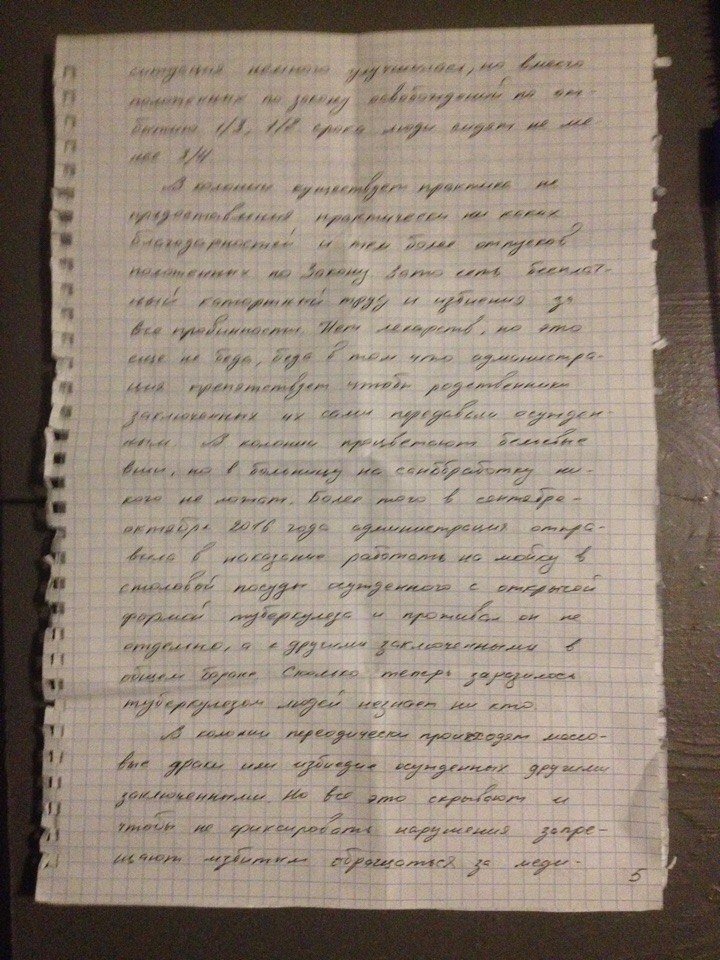 ситуация немного улучшилась, но вместо
положенных по закону освобождений по от-
бытию 1/3, 1/2 срока люди сидят не ме
нее 3/4
В колонии существует практика не
предоставления практически ни каких
благодарностей и тем более отпусков
положенных по Закону Зато есть бесплат-
ный каторжный труд и избиения за
все провинности. Нет лекарств, но это
еще не беда, беда в том что администра-
ция препятствует чтобы родственники
заключенных их сами передавали осужден-
ным. В колонии процветают бельевые
вши, но в больницу на санобработку ни-
кого не ложат. Более того в сентябре-
октябре 2016 года администрация отпра-
вила в наказание работать на мойку в
столовой посуды осужденного с открытой
формой туберкулеза и проживал он не
отдельно, а с другими заключенными в
общем бараке. Сколько теперь заразилось
туберкулезом людей незнает ни кто.
В колонии переодически происходят массо-
вые драки или избиение осужденных другими
заключенными. Но все это скрывают и
чтобы не фиксировать нарушения запре-
щают избитым обращаться за меди-
5